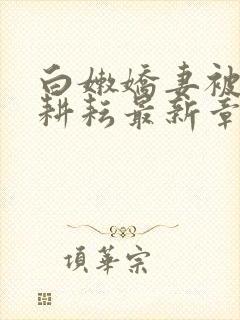 白嫩嬌妻被
耕耘最新章
項華宗